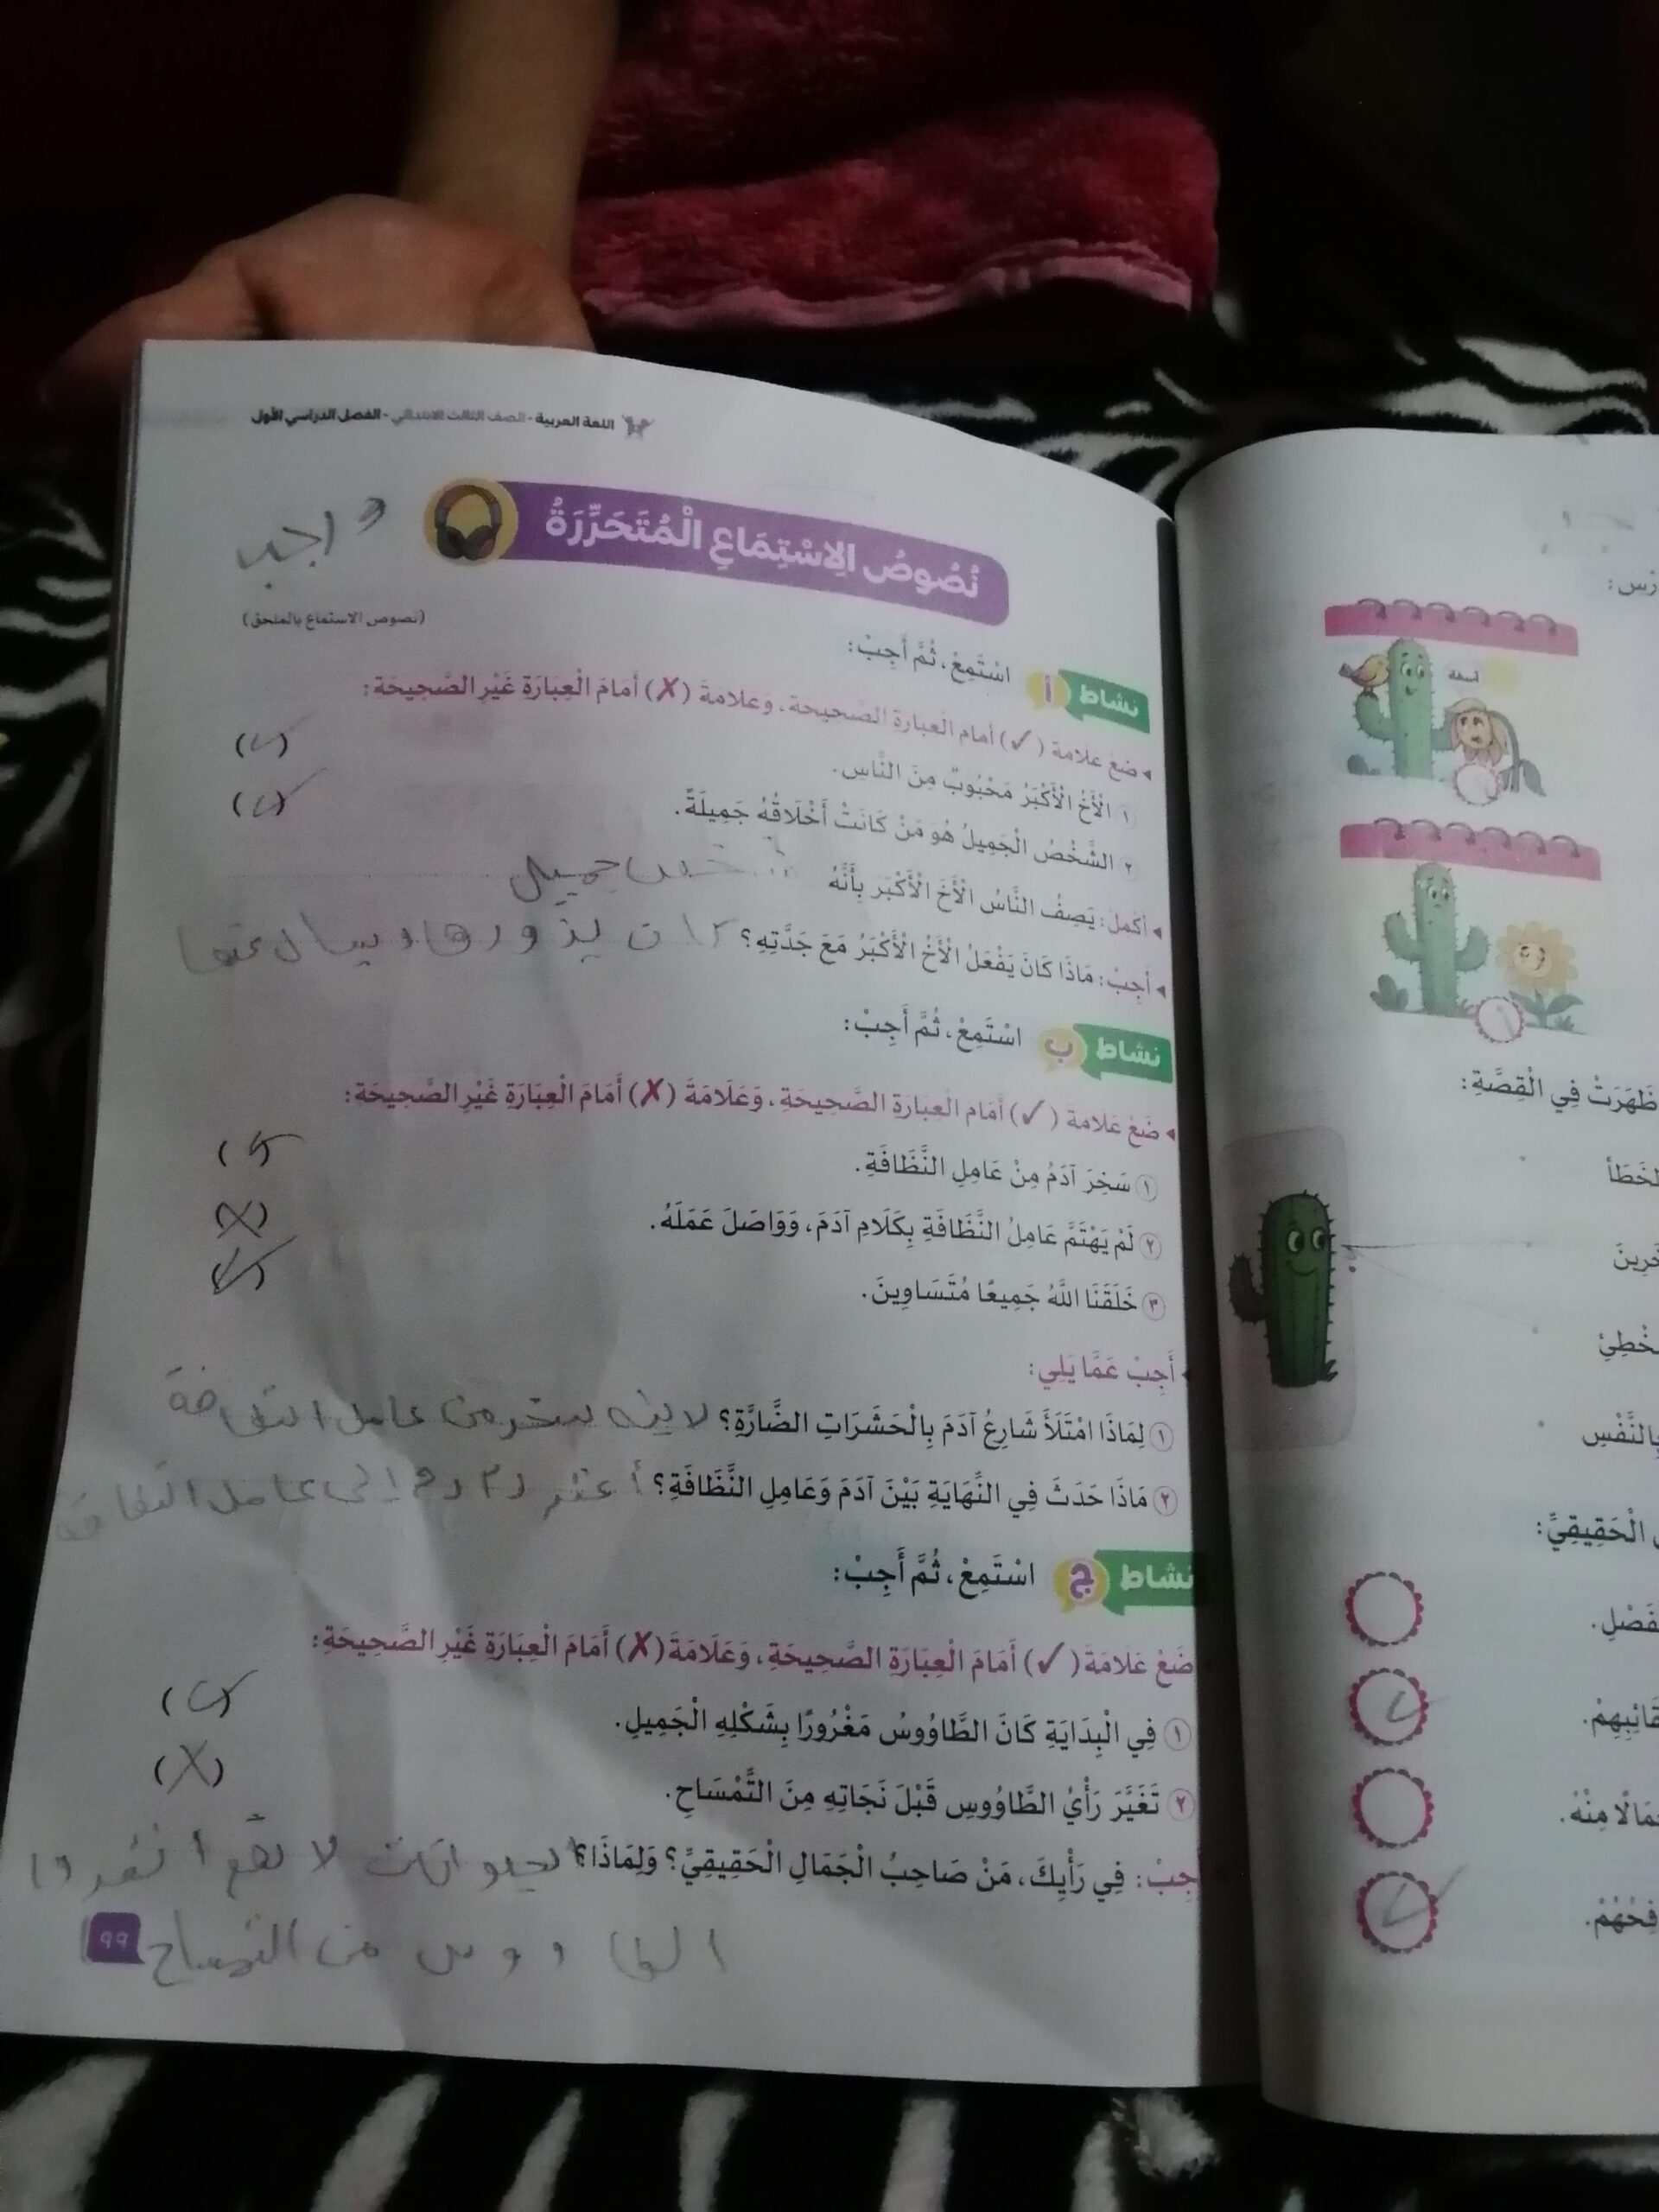 اللغة العربية - الصف الثالث الابتدائي - الفصل الدراسي الأول
نُصُوصُ الِاسْتِمَاعِ الْمُتَحَرِّرَةُ
واجب
(نصوص الاستماع بالملحق)
نشاط أ اسْتَمِعْ، ثُمَّ أَجِبْ:
◂ ضع علامة (✓) أمام العبارة الصحيحة، وعلامة (✗) أَمَامَ الْعِبَارَةِ غَيْرِ الصَّحِيحَةِ:
١ الْأَخُ الْأَكْبَرُ مَحْبُوبٌ مِنَ النَّاسِ. (✓)
٢ الشَّخْصُ الْجَمِيلُ هُوَ مَنْ كَانَتْ أَخْلَاقُهُ جَمِيلَةً. (✓)
◂ أكمل: يَصِفُ النَّاسُ الْأَخَ الْأَكْبَرَ بِأَنَّهُ شخص جميل
◂ أَجِبْ: مَاذَا كَانَ يَفْعَلُ الْأَخُ الْأَكْبَرُ مَعَ جَدَّتِهِ؟ كان يذورها و يسال عنها
نشاط ب اسْتَمِعْ، ثُمَّ أَجِبْ:
◂ ضَعْ عَلَامَةَ (✓) أَمَامَ الْعِبَارَةِ الصَّحِيحَةِ، وَعَلَامَةَ (✗) أَمَامَ الْعِبَارَةِ غَيْرِ الصَّحِيحَةِ:
١ سَخِرَ آدَمُ مِنْ عَامِلِ النَّظَافَةِ. (✓)
٢ لَمْ يَهْتَمَّ عَامِلُ النَّظَافَةِ بِكَلَامِ آدَمَ، وَوَاصَلَ عَمَلَهُ. (X)
٣ خَلَقَنَا اللَّهُ جَمِيعًا مُتَسَاوِينَ. (✓)
أَجِبْ عَمَّا يَلِي:
١ لِمَاذَا امْتَلَأَ شَارِعُ آدَمَ بِالْحَشَرَاتِ الضَّارَّةِ؟ من عامل
٢ مَاذَا حَدَثَ فِي النِّهَايَةِ بَيْنَ آدَمَ وَعَامِلِ النَّظَافَةِ؟ إلى عامل
نشاط ج اسْتَمِعْ، ثُمَّ أَجِبْ:
ضَعْ عَلَامَةَ (✓) أَمَامَ الْعِبَارَةِ الصَّحِيحَةِ، وَعَلَامَةَ (✗) أَمَامَ الْعِبَارَةِ غَيْرِ الصَّحِيحَةِ:
١ فِي الْبِدَايَةِ كَانَ الطَّاوُوسُ مَغْرُورًا بِشَكْلِهِ الْجَمِيلِ. (✓)
٢ تَغَيَّرَ رَأْيُ الطَّاوُوسِ قَبْلَ نَجَاتِهِ مِنَ التِّمْسَاحِ. (X)
جِبْ: فِي رَأْيِكَ، مَنْ صَاحِبُ الْجَمَالِ الْحَقِيقِيِّ؟ وَلِمَاذَا؟
الطاووس من التمساح
٩٩
ظَهَرَتْ فِي الْقِصَّةِ:
بِالنَّفْسِ
الْحَقِيقِيِّ: